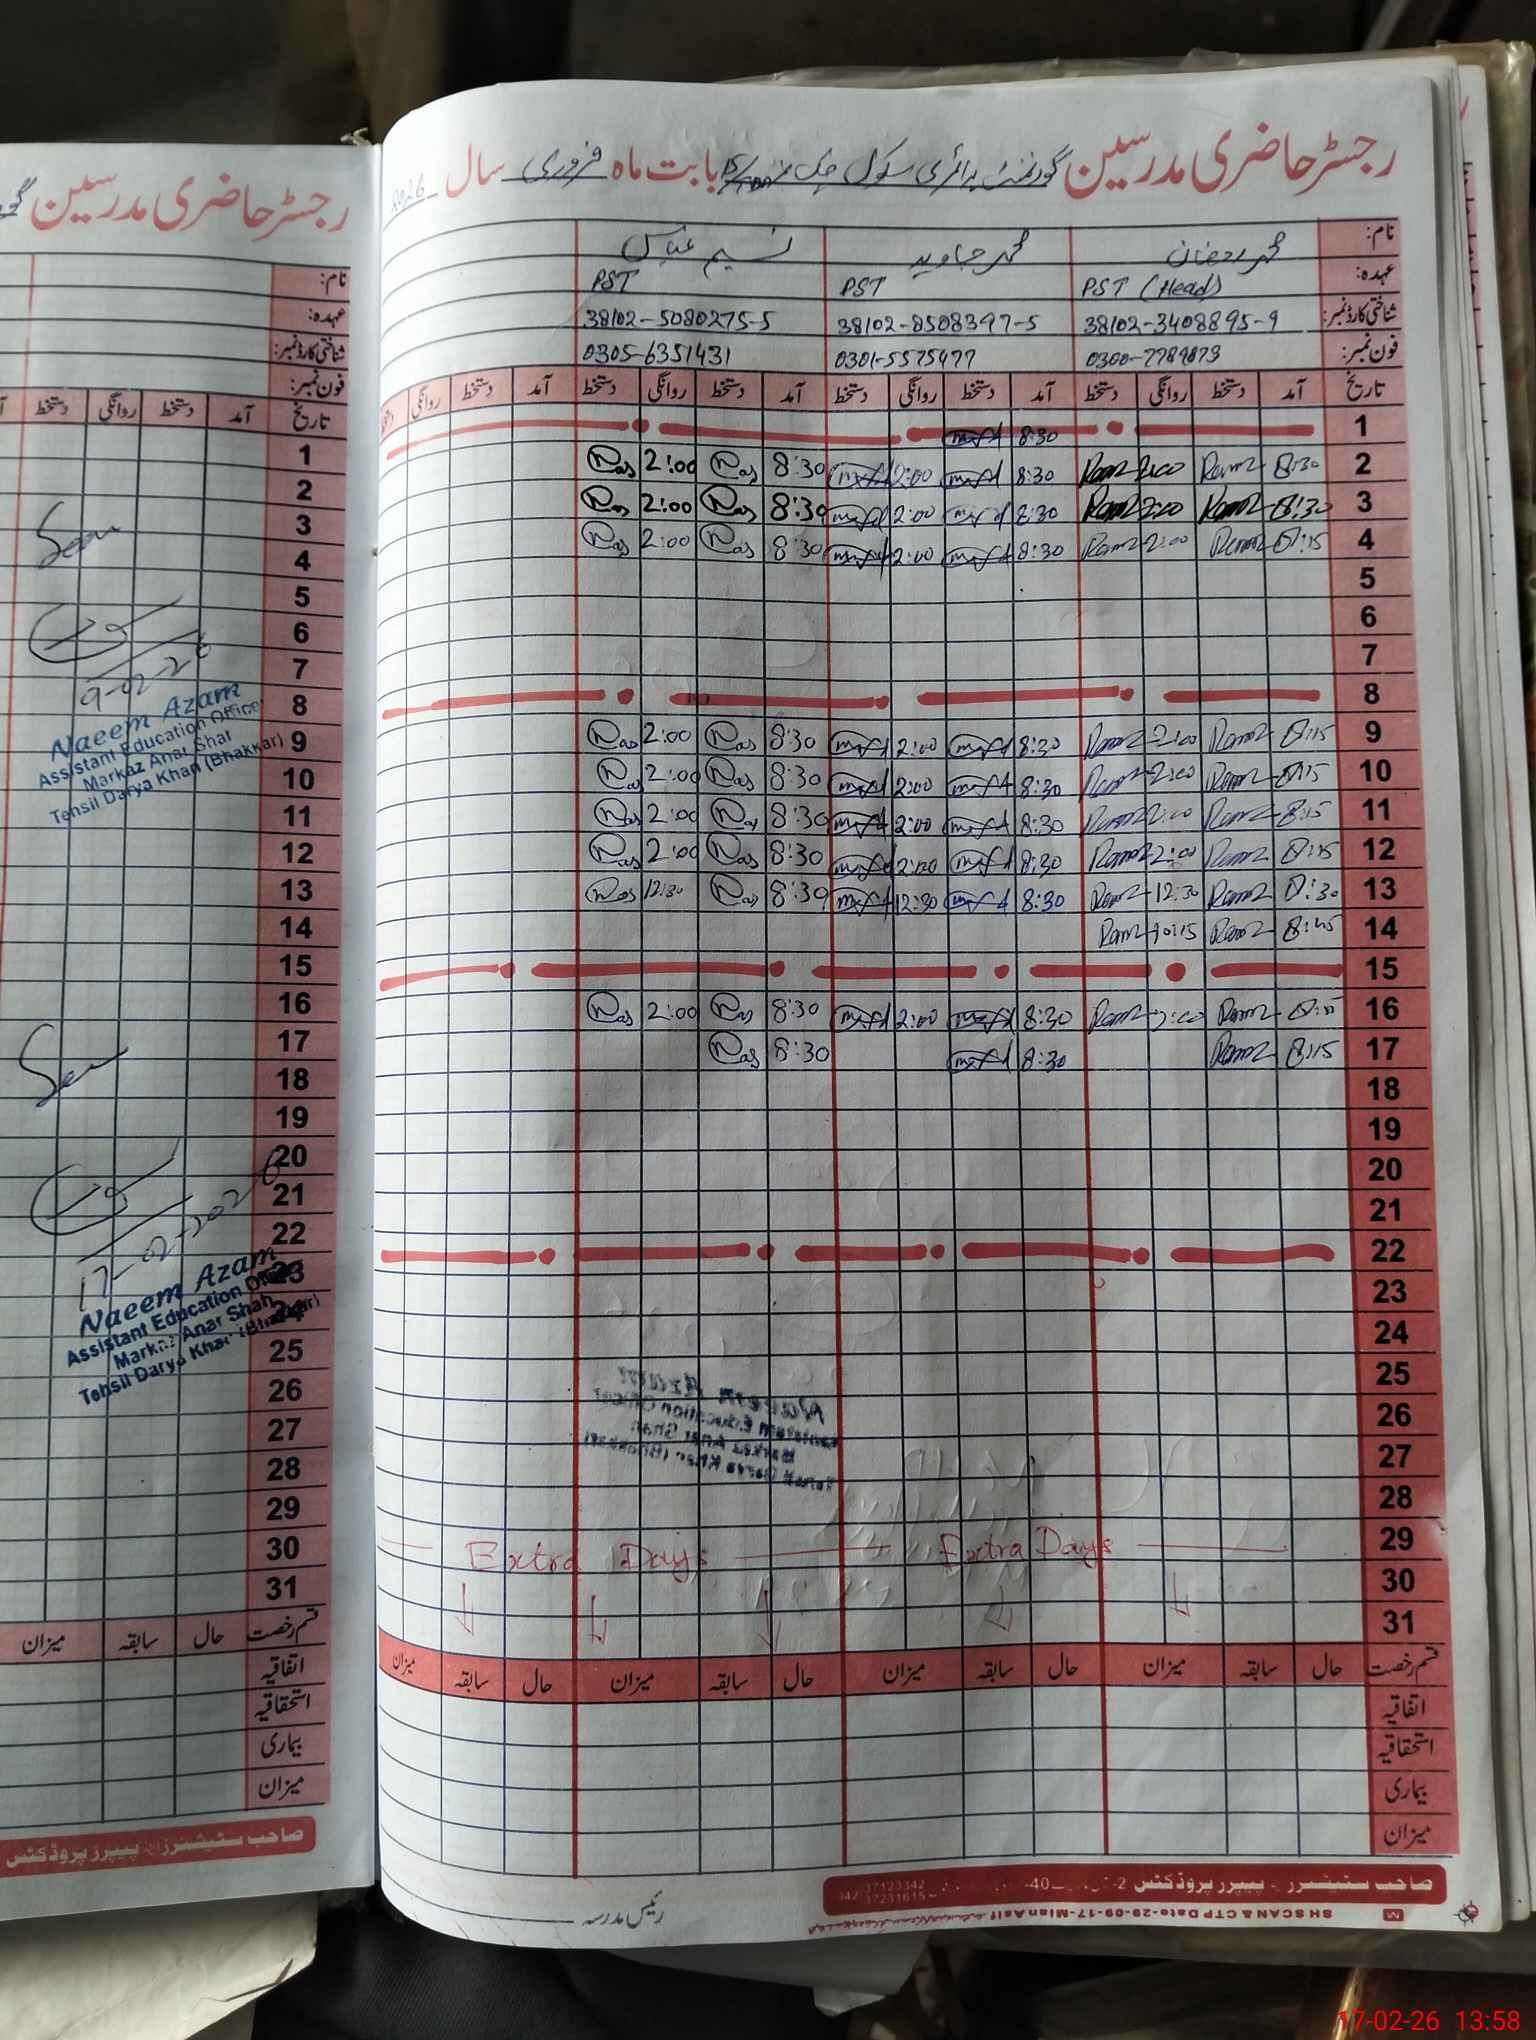 رجسٹر حاضری مدرسین گورنمنٹ پرائمری سکول چک نمبر بابت ماہ فروری سال 2026
نام: محمد رمضان محمد جاوید نسیم عباس
عہدہ: PST (Head) PST PST
شناختی کارڈ نمبر: 38102-3408895-9 38102-8508397-5 38102-5080275-5
فون نمبر: 0300-7789873 0301-5575477 0305-6351431
تاریخ آمد دستخط روانگی دستخط آمد دستخط روانگی دستخط آمد دستخط روانگی دستخط آمد دستخط روانگی
1 8:30
2 8:30 Ramz 2:00 Ramz 8:30 2:00 8:30 Nas 2:00 Nas
3 8:30 Ramz 2:00 Ramz 8:30 2:00 8:30 Nas 2:00 Nas
4 8:15 Ramz 2:00 Ramz 8:30 2:00 8:30 Nas 2:00 Nas
5
6
7
8
9 8:15 Ramz 2:00 Ramz 8:30 2:00 8:30 Nas 2:00 Nas
10 8:15 Ramz 2:00 Ramz 8:30 2:00 8:30 Nas 2:00 Nas
11 8:15 Ramz 2:00 Ramz 8:30 2:00 8:30 Nas 2:00 Nas
12 8:15 Ramz 2:00 Ramz 8:30 2:00 8:30 Nas 2:00 Nas
13 8:30 Ramz 12:30 Ramz 8:30 12:30 8:30 Nas 12:30 Nas
14 8:45 Ramz 10:15 Ramz
15
16 8:15 Ramz 2:00 Ramz 8:30 2:00 8:30 Nas 2:00 Nas
17 8:15 Ramz 8:30 8:30 Nas
18
19
20
21
22
23
24
25
26
27
28
29 Extra Days Extra Days
30
31
قسم رخصت حال سابقہ میزان حال سابقہ میزان حال سابقہ میزان حال سابقہ میزان
اتفاقیہ
استحقاقیہ
بیماری
میزان
صاحب سٹیشنرز پیپرز پروڈکٹس
37123342
37231615
SH SCAN & CTP Date-29-09-17-Mian Asif
رئیس مدرسہ
رجسٹر حاضری مدرسین
نام:
عہدہ:
شناختی کارڈ نمبر:
فون نمبر:
تاریخ آمد دستخط روانگی دستخط
1
2
3
4
5
6
7
8
9
10
11
12
13
14
15
16
17
18
19
20
21
22
23
24
25
26
27
28
29
30
31
Seen
9-02-26
Naeem Azam
Assistant Education Officer
Markaz Anar Shah
Tehsil Darya Khan (Bhakkar)
Seen
17-02-2026
Naeem Azam
Assistant Education Officer
Markaz Anar Shah
Tehsil Darya Khan (Bhakkar)
قسم رخصت حال سابقہ میزان
اتفاقیہ
استحقاقیہ
بیماری
میزان
صاحب سٹیشنرز اینڈ پیپرز پروڈکٹس
17-02-26 13:58